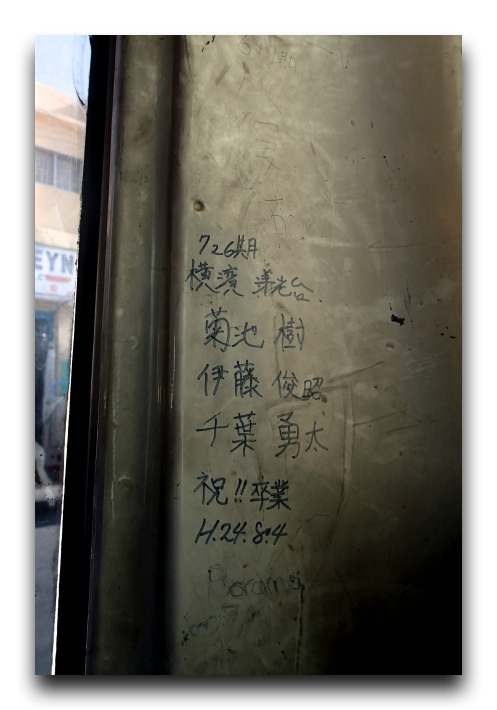 EYN
726期
横濱 弟老台
菊池 樹
伊藤 俊昭
千葉 勇太
祝!!卒業
H.24.8.4